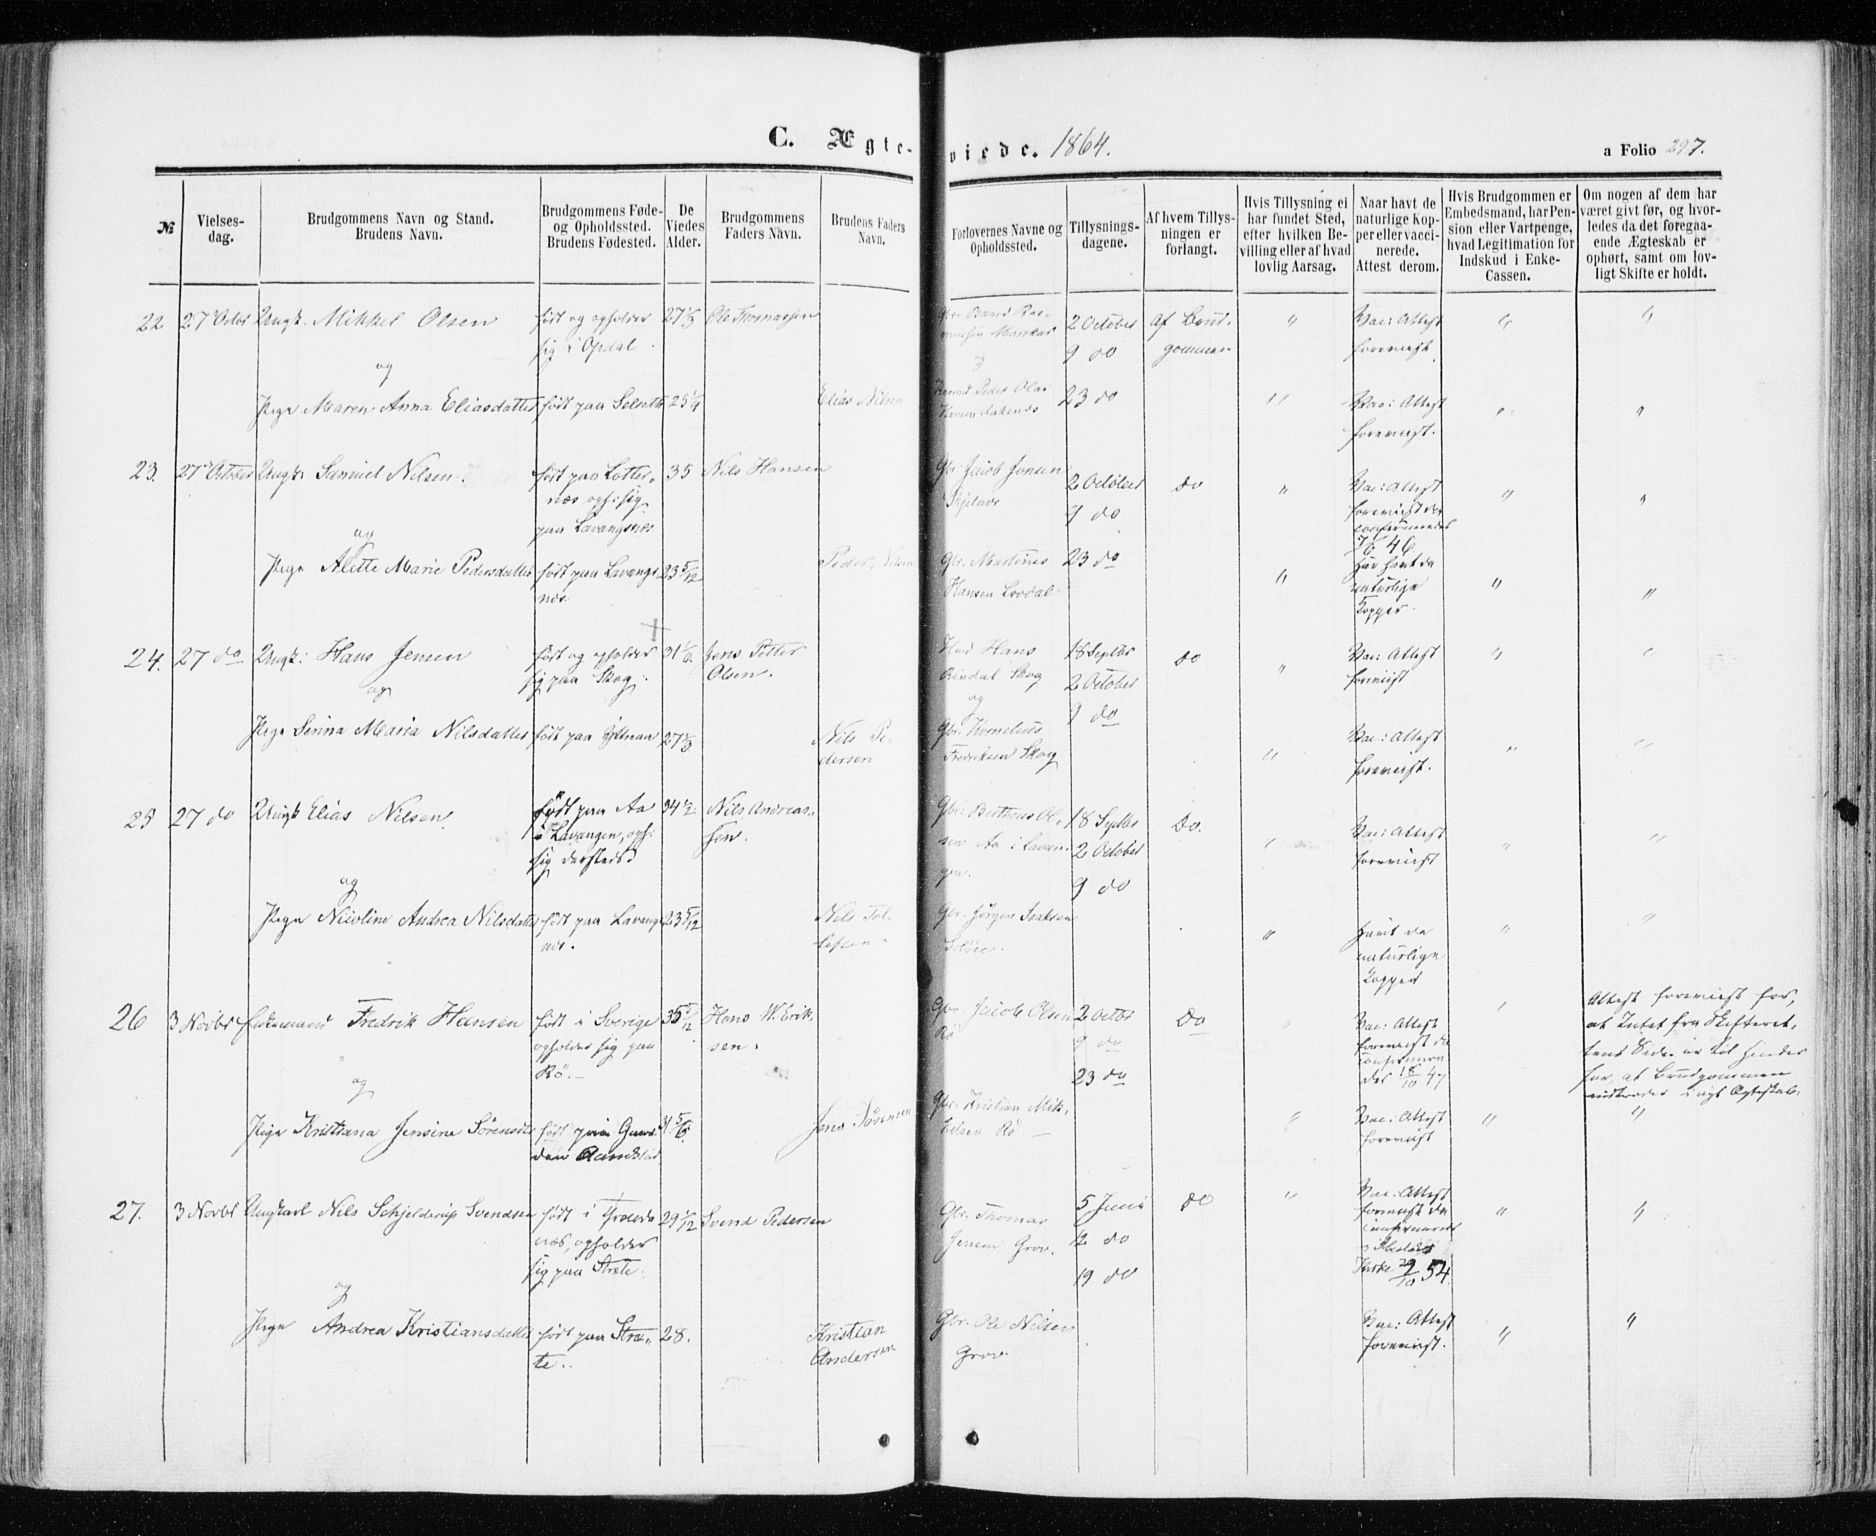 C. Ægte-viede. 1864.
a Folio 297.
№
Vielses-
dag.
Brudgommens Navn og Stand.
Brudens Navn.
Brudgommens Føde-
og Opholdssted.
Brudens Fødested.
De
Viedes
Alder.
Brudgommens
Faders Navn.
Brudens Faders
Navn.
Forlovernes Navne og
Opholdssted.
Tillysnings-
dagene.
Af hvem Tillys-
ningen er
forlangt.
Hvis Tillysning ei
har fundet Sted,
efter hvilken Be-
villing eller af hvad
lovlig Aarsag.
Naar havt de
naturlige Kop-
per eller vacci-
nerede.
Attest derom.
Hvis Brudgommen er
Embedsmand, har Pen-
sion eller Vartpenge,
hvad Legitimation for
Indskud i Enke-
Cassen.
Om nogen af dem har
været givt før, og hvor-
ledes da det foregaa-
ende Ægteskab er
ophørt, samt om lov-
ligt Skifte er holdt.
22 27 Octbr Ungk. Mikkel Olsen
født og opholder
sig i Opdal.
Ole Thomassen
2 October
9 do
Af Brud-
gommen
Vac: Attest
forevist
og
Pige Maren Anna Eliasdatter
født paa Selseth
25 1/4
Elias Nilsen
23 do
Vac: Attest
forevist.
23. 27 October Ungk. Samuel Nilsen
født paa
oph: sig
paa Lavangsnes
35
Nils Hansen
Gbr. Jacob Jonsen
2 October
9 do
do
Vac: Attest
forevist da
confirmeredes
46
og
Pige Alette Marie Pedersdatter
født paa Lavangs-
nes.
23 5/12
Peder Nilsen
Gbr. Martines
Hansen
23 do
har havt de
naturlige
Kopper.
24. 27 do Ungk: Hans Jensen
født og opholder
sig paa Skog.
31 1/6
Jens Petter
Olsen.
Hans
Rindal Skog
og
18 Septbr
2 October
9 do
do
Vac: Attest
forevist
og
Pige Maria Nilsdatter
født paa
Nils Pe-
dersen
Gbr. Kornelius
Fredriksen Skog
Vac: Attest
forevist.
25 27 do Ungk Elias Nilsen.
født paa Aa
i Lavangen, oph:
sig dersteds
34 1/2
Nils Andreas-
sen.
Gbr: Bertheus Ol-
sen Aa i Lavan-
gen.
18 Septbr
2 October
9 do
Do.
Vac: Attest
forevist
og
Pige Nicoline Andrea Nilsdatter
født paa Lavangs-
nes.
23 5/12
Nils Tol-
lefsen.
Gbr. Jørgen Isaksen
Havt de
naturlige
Kopper
26 3 Novbr Enkemand Fredrik Hansen
født i Sverige
opholder sig paa
Rö.-
35
Hans W. Erik-
sen.
Gbr. Jacob Olsen
Rö
2 Octbr
9 do
23 do
Do
Vac: Attest
forevist da
confirmere-
des 18/10 47
Attest forevist for,
at Intet fra Skifteret-
tens Side er til Hinder
for at Brudgommen
indtræder i nyt Ægteskab.
og
Pige Kristiana Jensine Sörensdtr
født paa Gaar-
den
Jens Sörensen
Gbr. Kristian Mik-
kelsen Rö. -
Vac: Attest
forevist
27. 3 Novbr Ungkarl Nils Schjelderup Svendsen
født i
næs, opholder
sig paa Stræte.
29 1/12
Svend Pedersen
Gbr. Thomas
Jensen Grov.
5 Juni
12 do
19 do
do
Vac: Attest
forevist da
confirmeret
i Ibestad
Kirke 29/10 54.
og
Pige Andrea Kristiansdatter
født paa Stræ-
te.
28.
Kristian
Andersen
Gbr. Ole Nilsen
Grov
Vac: Attest
forevist.